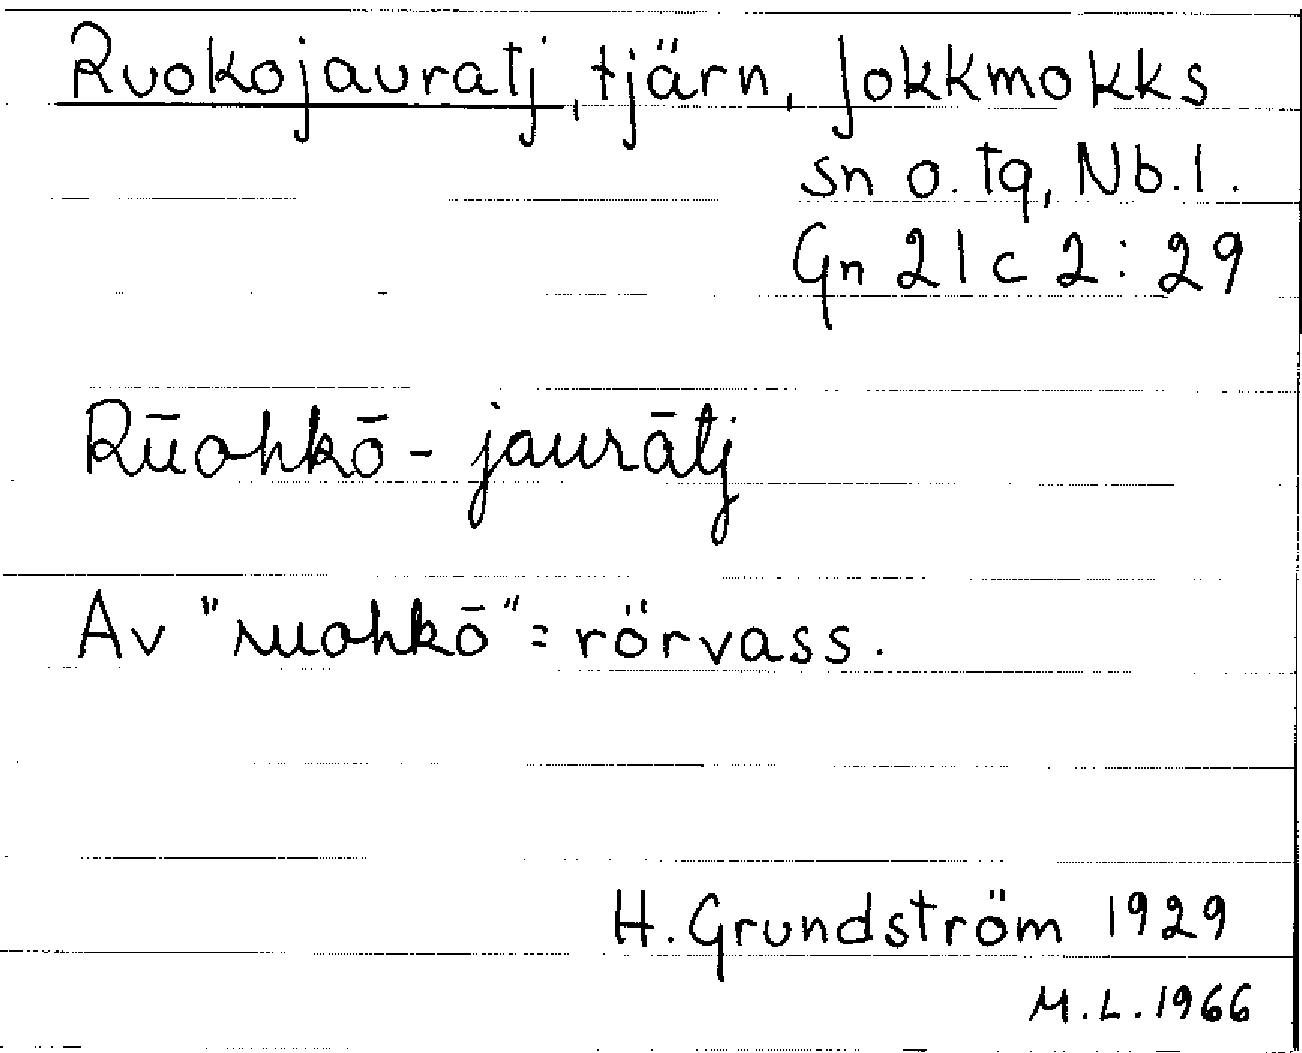 Ruokojauratj, tjärn, Jokkmokks
sn o. tg, Nb.l.
Gn 21 c 2:29
Rūohkō-jaurātj
Av "ruohkō" = rörvass.
H. Grundström 1929
M.L. 1966